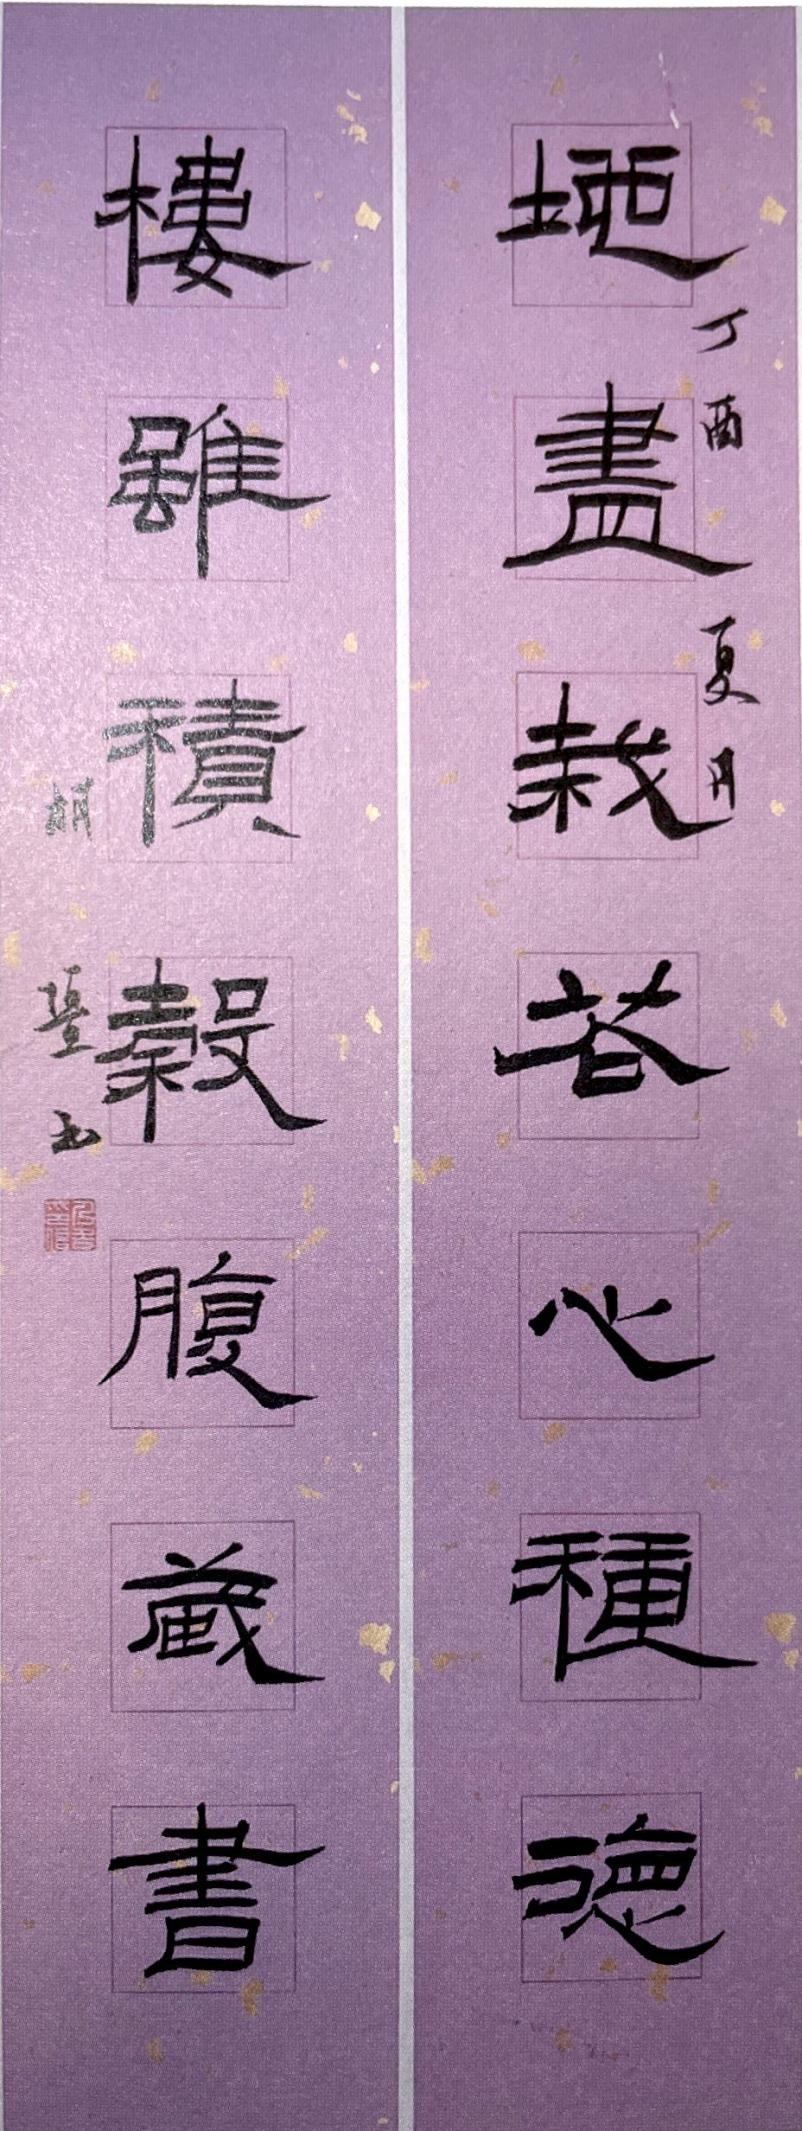 地盡栽花心種德
丁酉夏月
樓雖積穀腹藏書
胡